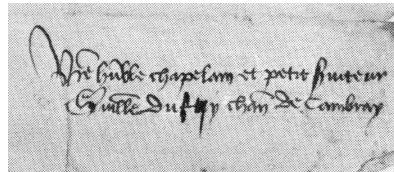 Vre humble chapelain et petit s'viteur
Guille du fay chan de Cambray